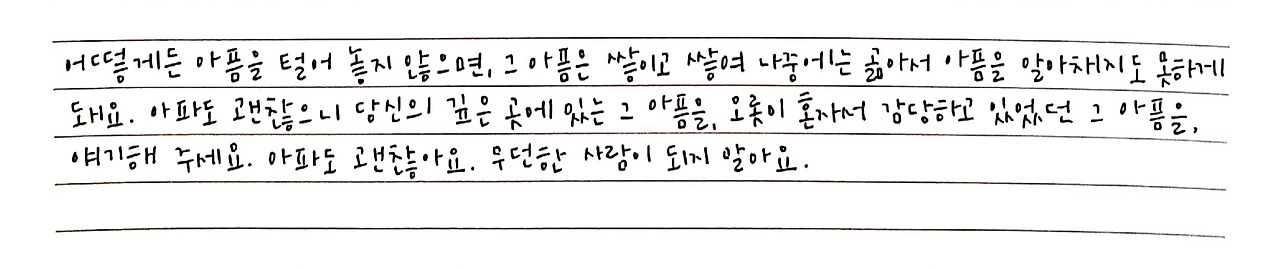 어떻게든 아픔을 털어 놓지 않으면, 그 아픔은 쌓이고 쌓여 나중에는 곪아서 아픔을 알아채지도 못하게
돼요. 아파도 괜찮으니 당신의 깊은 곳에 있는 그 아픔을, 오롯이 혼자서 감당하고 있었던 그 아픔을,
얘기해 주세요. 아파도 괜찮아요. 무던한 사람이 되지 말아요.